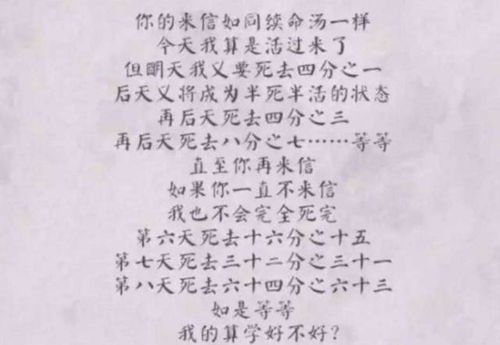 你的来信如同续命汤一样
今天我算是活过来了
但明天我又要死去四分之一
后天又将成为半死半活的状态
再后天死去四分之三
再后天死去八分之七……等等
直至你再来信
如果你一直不来信
我也不会完全死完
第六天死去十六分之十五
第七天死去三十二分之三十一
第八天死去六十四分之六十三
如是等等
我的算学好不好?